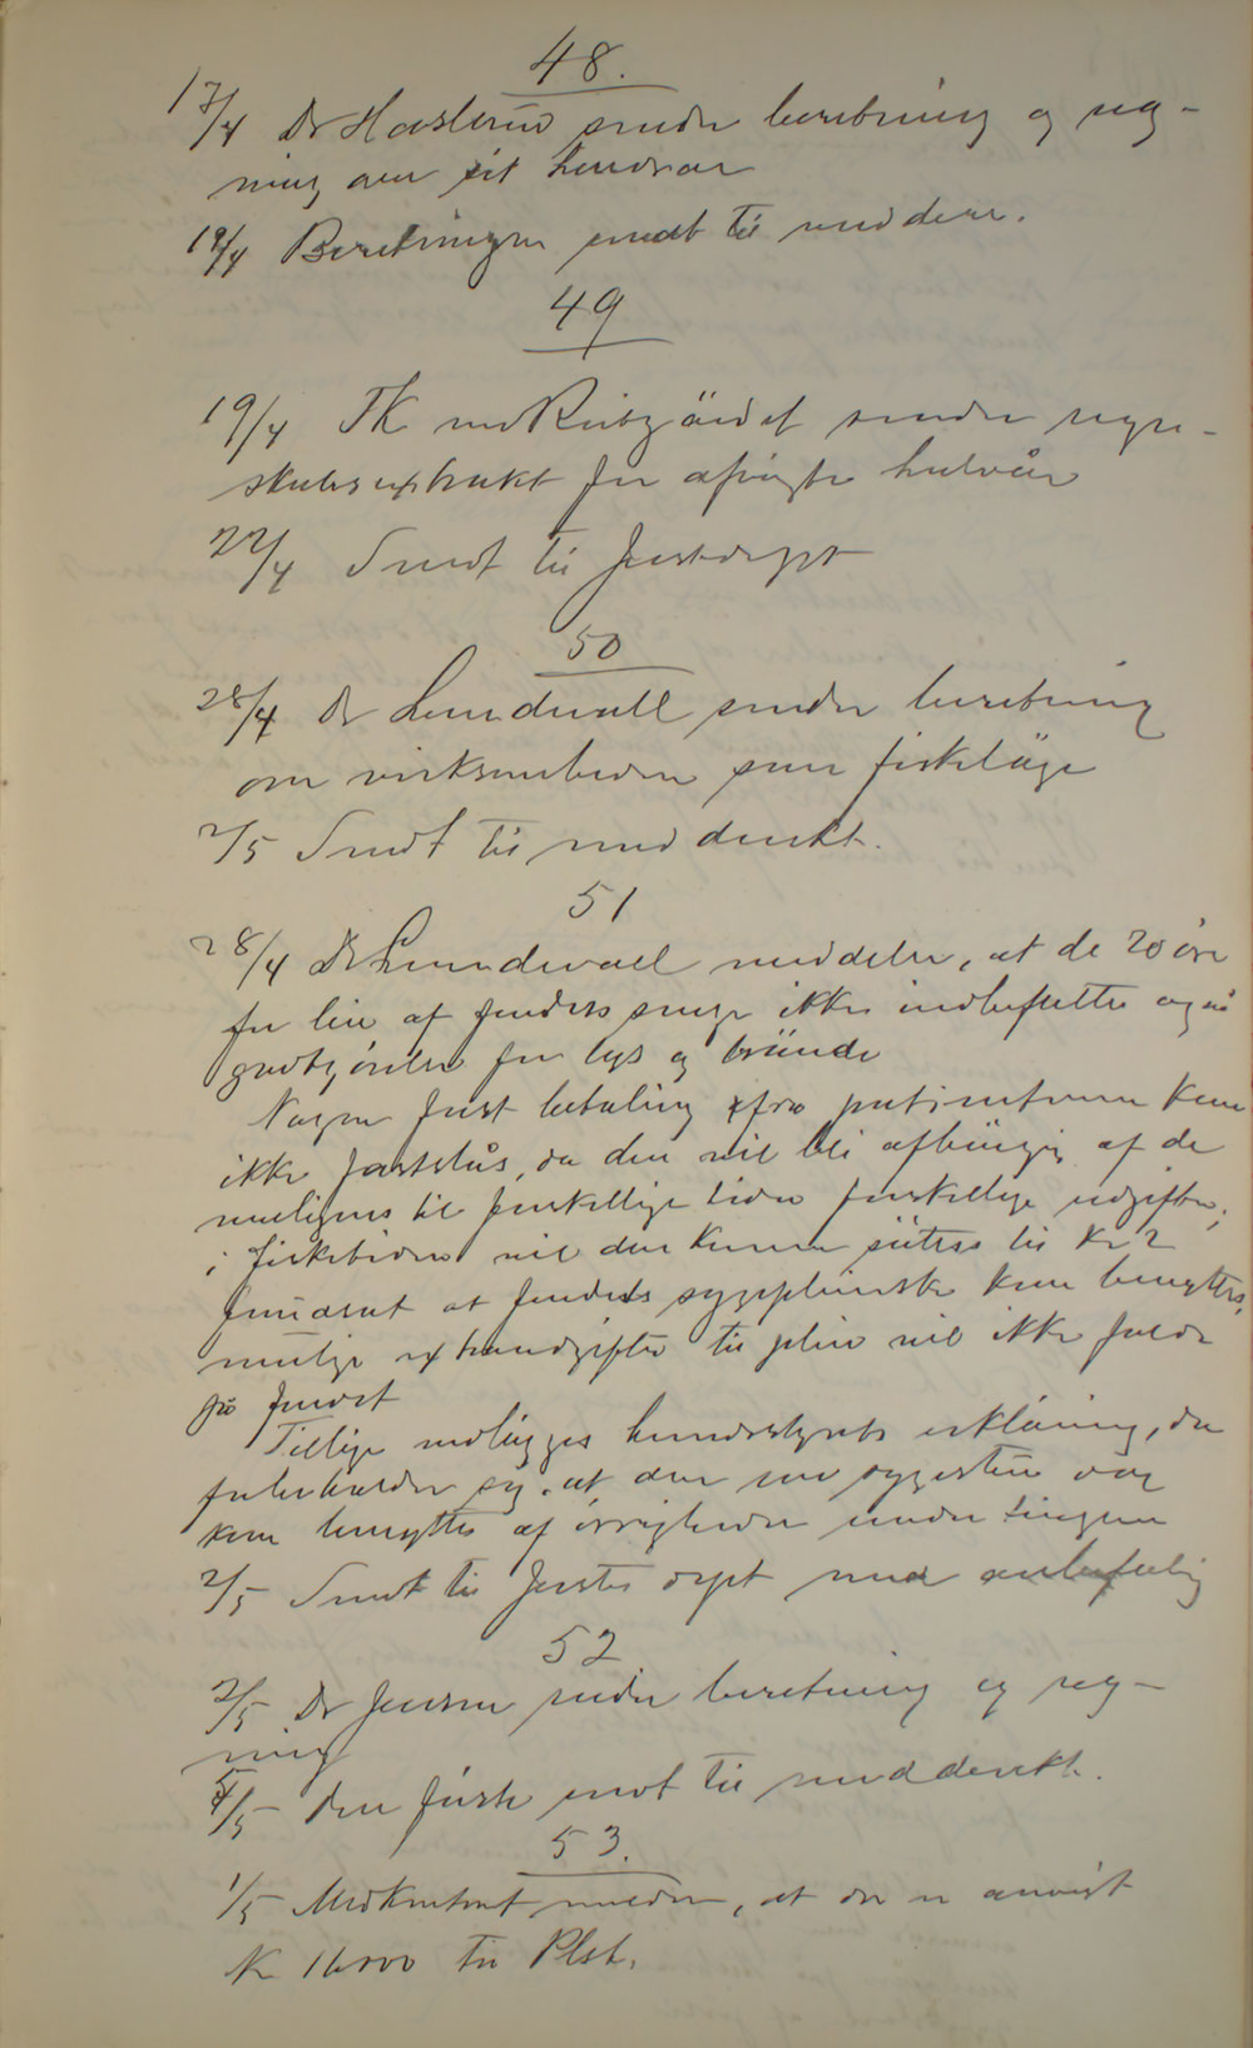 48.
17/4 Dr Haslund sender beretning og reg-
ning over sit honorar
19/4 Beretningen sendt til meddere.
49
19/4 TK ved Reitgjärdet sender regn-
skabsextrakt for afvigte halvår
22/4 Sendt til justdept
50
28/4 Dr Lundevall sender beretning
om virksomheden som fiskeläge
2/5 Sendt til meddirekt.
51
28/4 Dr Lundevall meddeler, at de 20 øre
for leie af fondets senge ikke indbefatter også
godtgjørelse for lys og brände
Nogen fast betaling fra patienterne kan
ikke fastslås, da den vil bli afhängig af de
muligens til forskellige tider forskellige udgifter,
i fisketiden vil den kunne sättes til Kr 2
forudsat at fondets sygeplierske kan benyttes,
mulige extraudgifter til pleie vil ikke falde
på fondet
Tillige vedlägges herredsstyrets erkläring, der
forbeholder sig, at den nye sygestue og
kan benyttes af øvrigheden under tingene
2/5 Sendt til justisdept med anbefaling
52
2/5 Dr Jensen sender beretning og reg-
ning
5/5 Den første sendt til meddirekt.
53.
1/5 Medkontoret melder, at der er anvist
Kr 16000 til Plst.